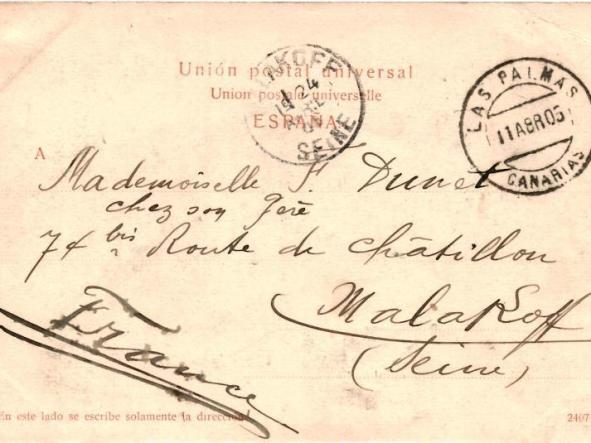 Unión postal universal
Union postale universelle
ESPAÑA
MALAKOFF
SEINE
LAS PALMAS
11 ABR 05
CANARIAS
A
Mademoiselle F. Dunet
chez son
74 bis Route de Châtillon
Malakoff
(Seine)
France
En este lado se escribe solamente la dirección
2407